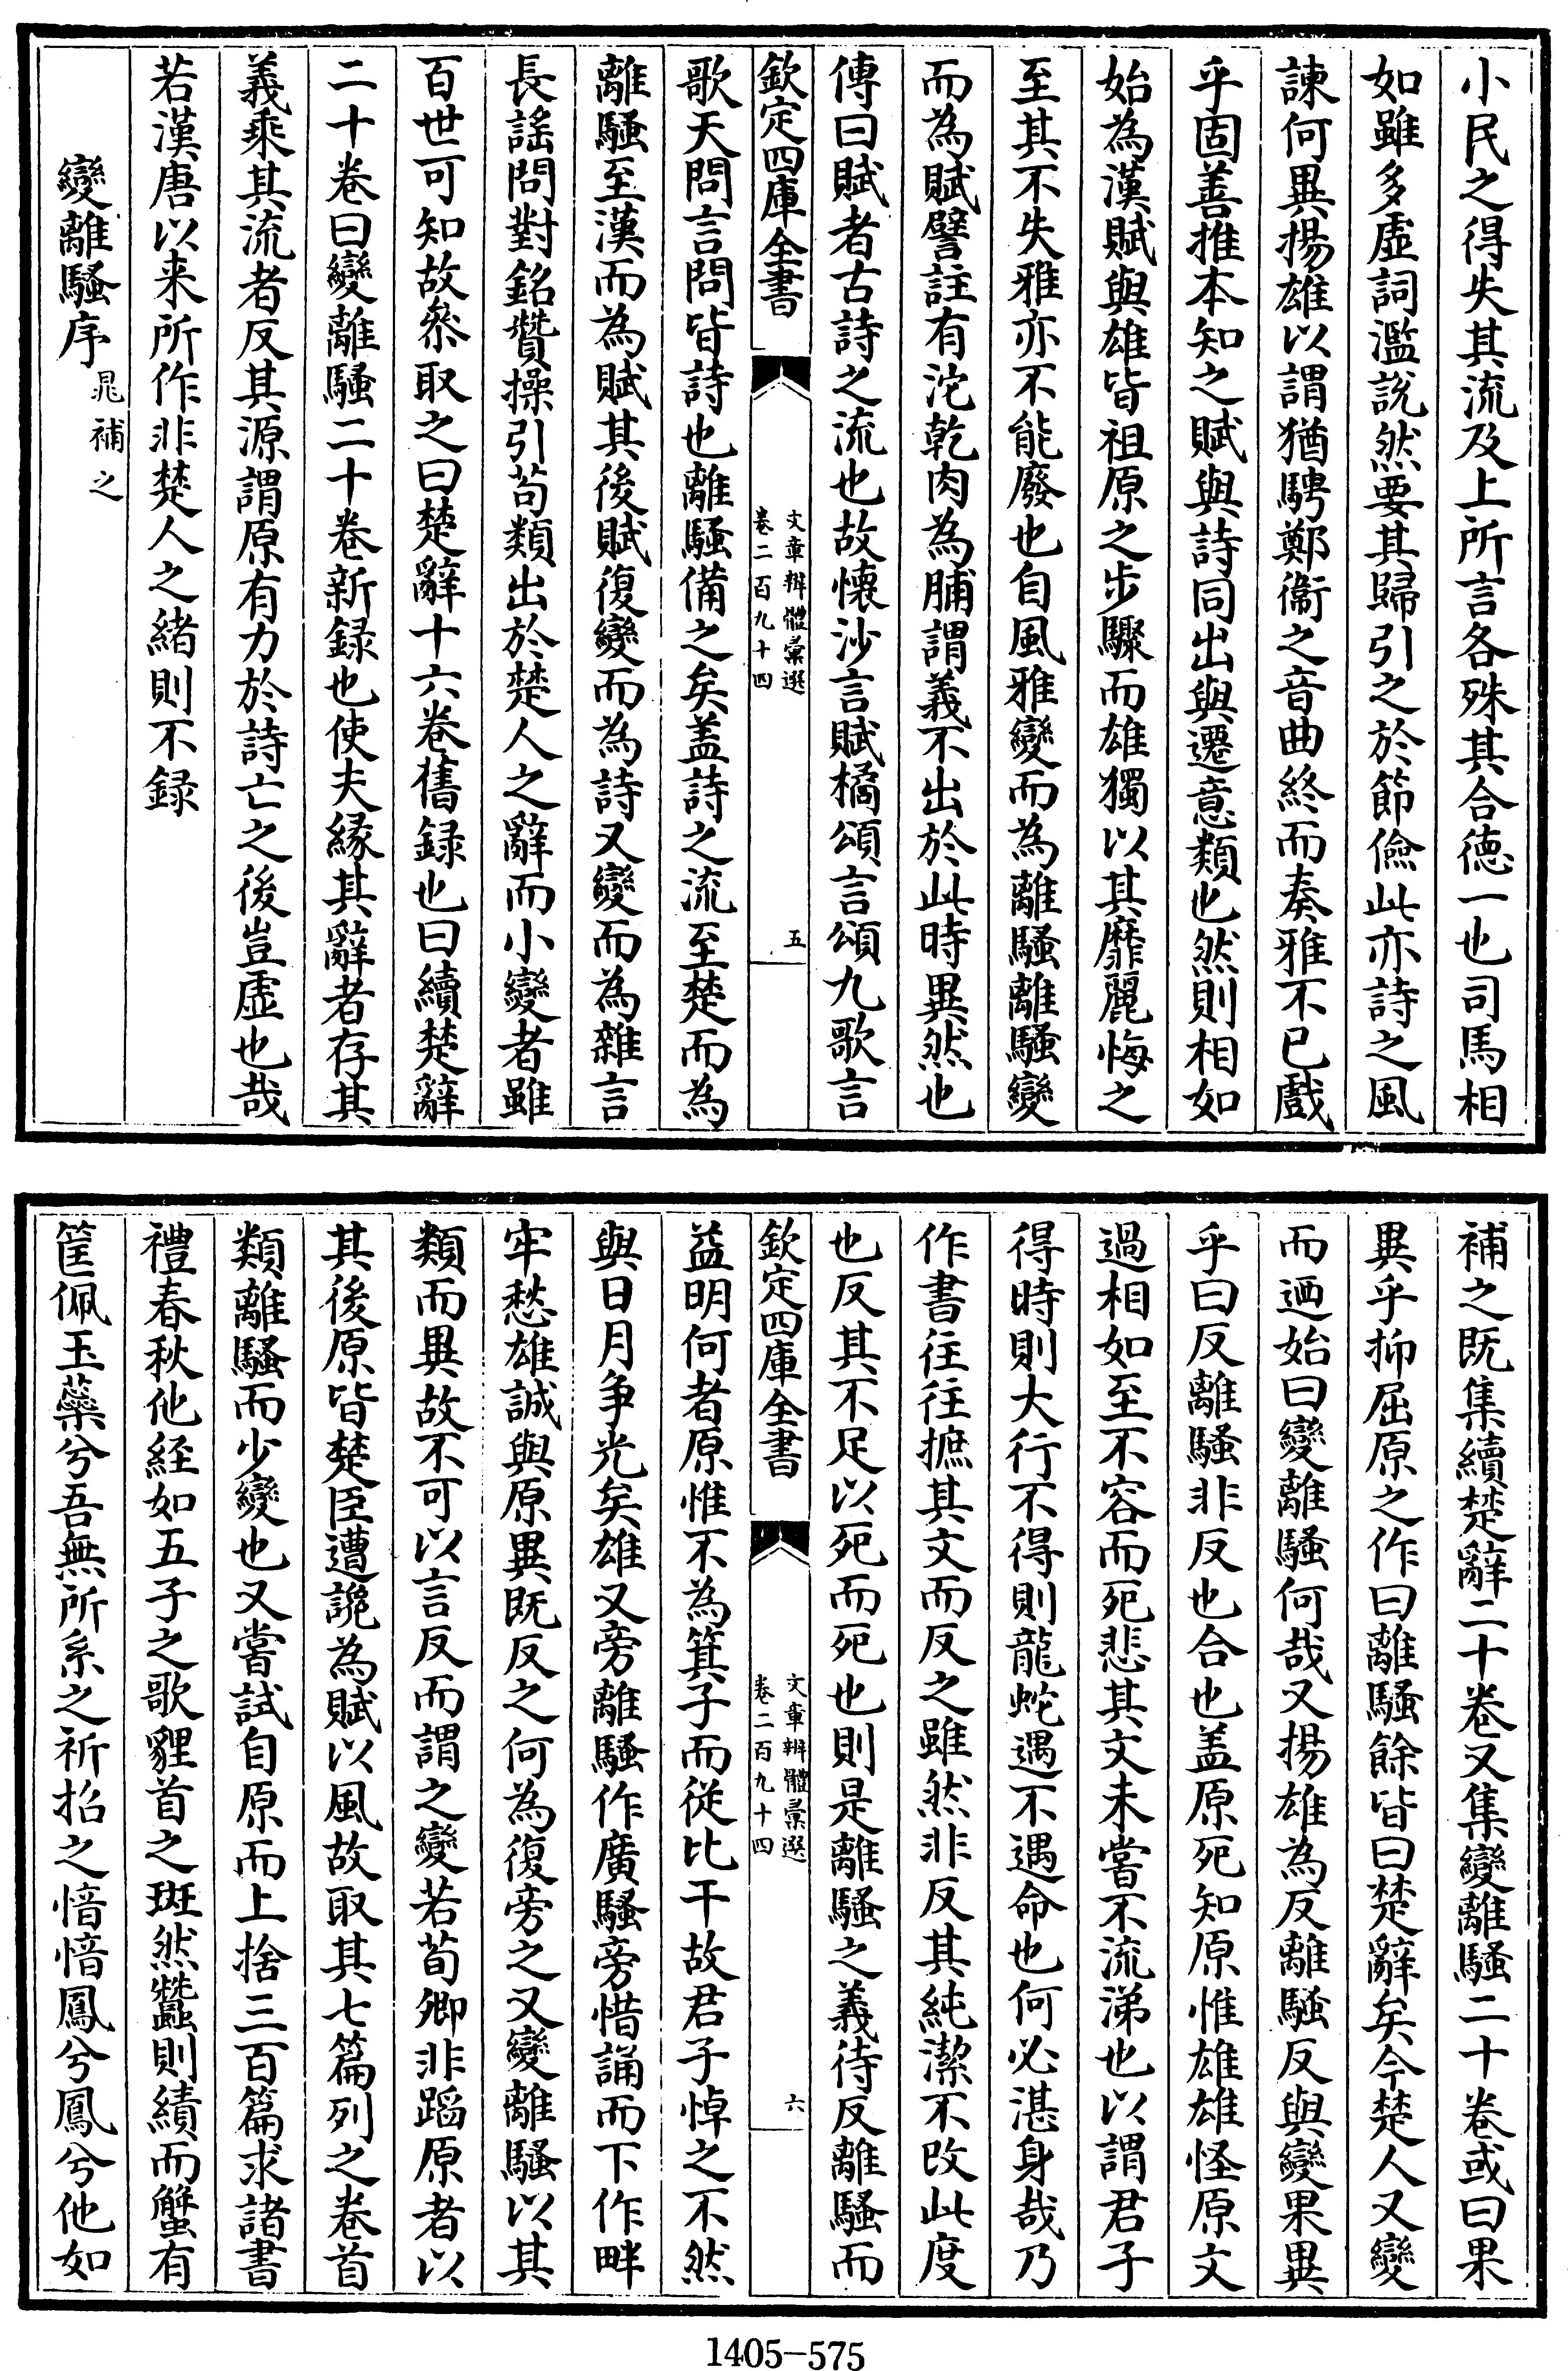 小民之得失其流及上所言各殊其合徳一也司馬相
如雖多虚詞濫說然要其歸引之於節儉此亦詩之風
諫何異揚雄以謂猶騁鄭衞之音曲終而奏雅不已戲
乎固善推本知之賦與詩同出與遷意類也然則相如
始為漢賦與雄皆祖原之步驟而雄獨以其靡麗悔之
至其不失雅亦不能廢也自風雅變而為離騷離騷變
而為賦譬註有沱乾肉為脯謂義不出於此時異然也
傳曰賦者古詩之流也故懷沙言賦橘頌言頌九歌言
欽定四庫全書
文章辨體彙選
卷二百九十四
五
歌天問言問皆詩也離騷備之矣盖詩之流至楚而為
離騷至漢而為賦其後賦復變而為詩又變而為雜言
長謡問對銘贊操引茍類出於楚人之辭而小變者雖
百世可知故叅取之曰楚辭十六卷舊録也曰續楚辭
二十卷曰變離騷二十卷新録也使夫縁其辭者存其
義乘其流者反其源謂原有力於詩亡之後豈虚也哉
若漢唐以来所作非楚人之緒則不録
變離騷序 晁補之
補之既集續楚辭二十卷又集變離騷二十卷或曰果
異乎抑屈原之作曰離騷餘皆曰楚辭矣今楚人又變
而迺始曰變離騷何哉又揚雄為反離騷反與變果異
乎曰反離騷非反也合也盖原死知原惟雄雄怪原文
過相如至不容而死悲其文未嘗不流涕也以謂君子
得時則大行不得則龍蛇遇不遇命也何必湛身哉乃
作書往往摭其文而反之雖然非反其純潔不改此度
也反其不足以死而死也則是離騷之義待反離騷而
欽定四庫全書
文章辨體彙選
卷二百九十四
六
益明何者原惟不為箕子而從比干故君子悼之不然
與日月争光矣雄又旁離騷作廣騷旁惜誦而下作畔
牢愁雄誠與原異既反之何為復旁之又變離騷以其
類而異故不可以言反而謂之變若荀卿非蹈原者以
其後原皆楚臣遭讒為賦以風故取其七篇列之卷首
類離騷而少變也又嘗試自原而上捨三百篇求諸書
禮春秋他經如五子之歌貍首之斑然蠶則績而蟹有
筐佩玉蘂兮吾無所系之祈招之愔愔鳳兮鳳兮他如
1405-575